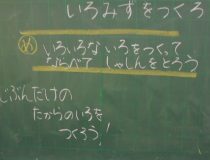 いろみずをつくろ
め いろいろな いろをつくって
ならべて しゃしんをとろう
じぶんだけの
たからのいろを
つくろう!